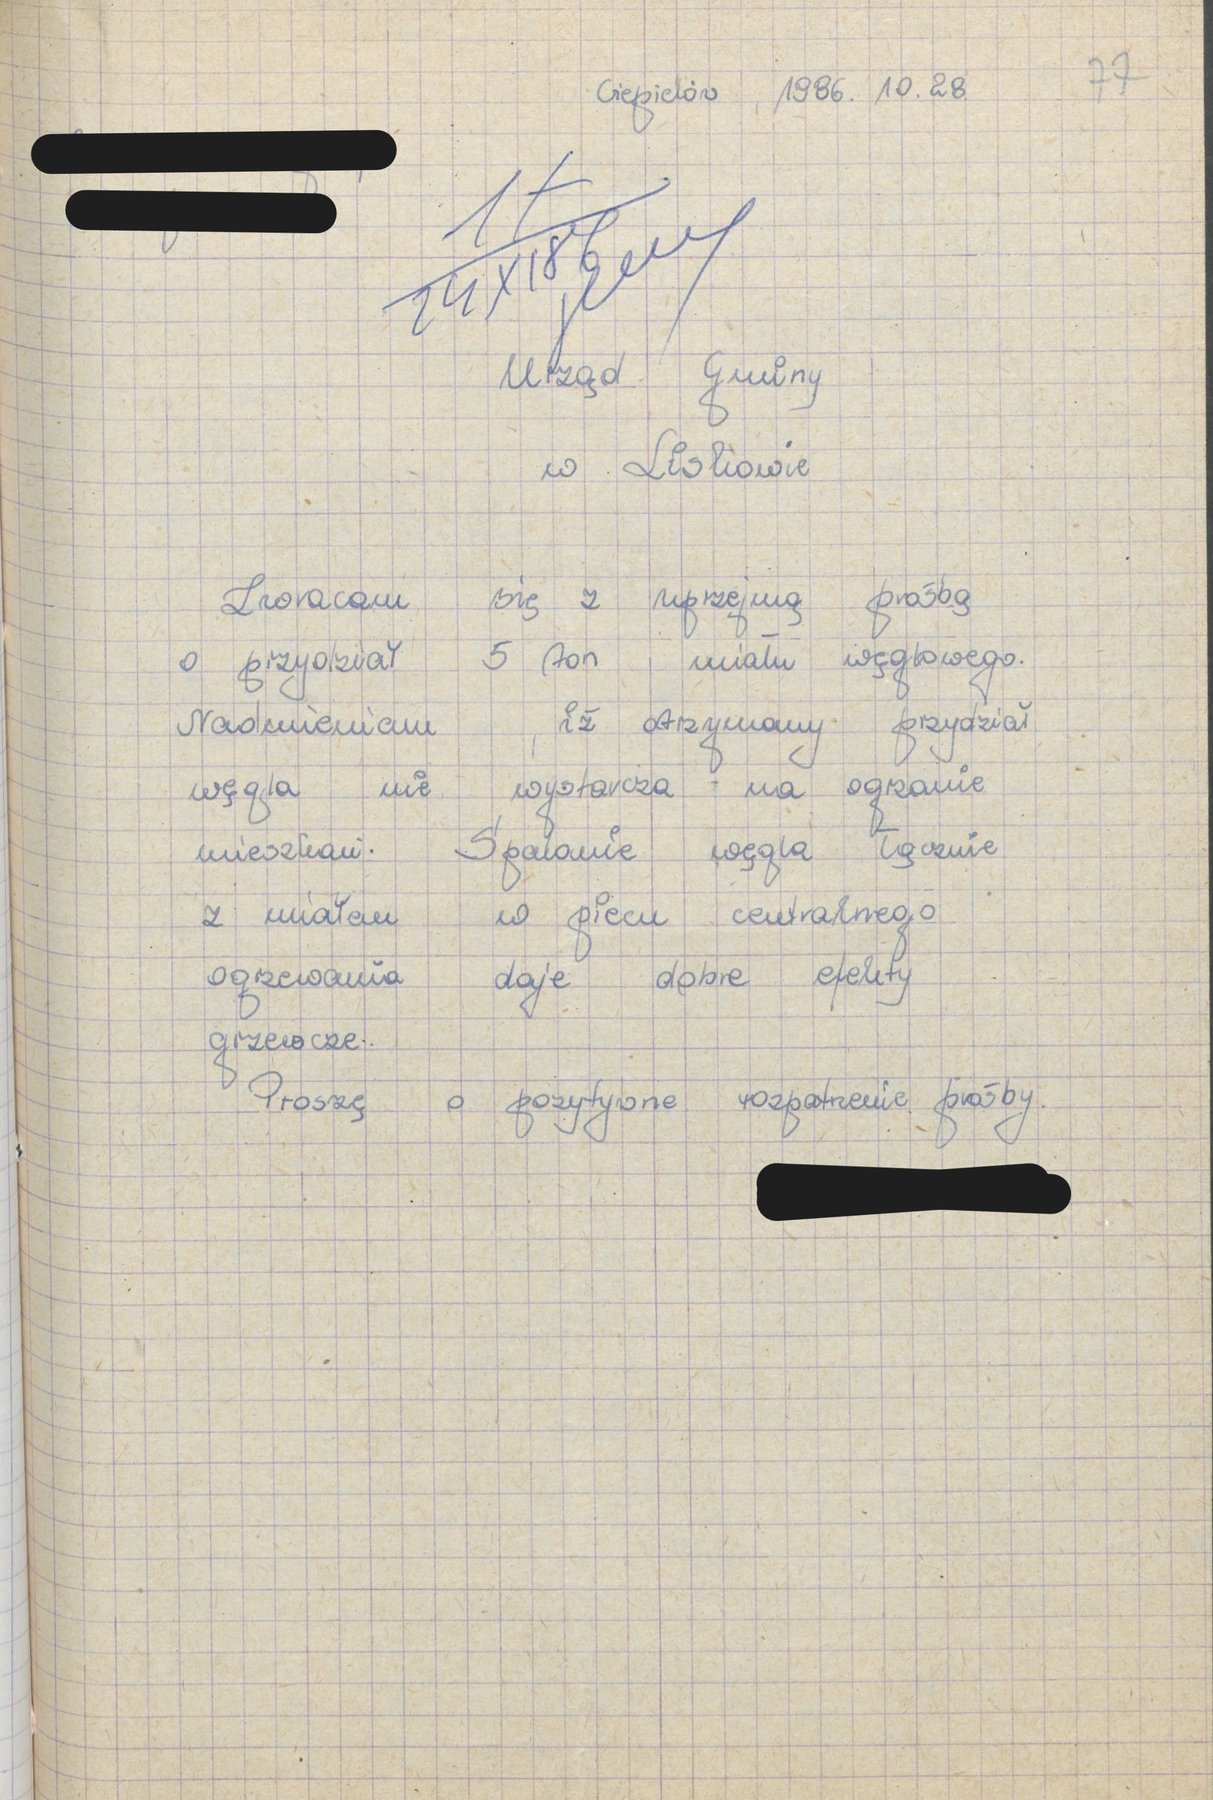 77
Ciepielów, 1986. 10. 28
1t
24 XI 86
Urząd Gminy
w Liskowie
Zwracam się z uprzejmą prośbą
o przydział 5 ton miału węglowego.
Nadmieniam, iż otrzymany przydział
węgla nie wystarcza na ogrzanie
mieszkań. Spalanie węgla łącznie
z miałem w piecu centralnego
ogrzewania daje dobre efekty
grzewcze.
Proszę o pozytywne rozpatrzenie prośby.